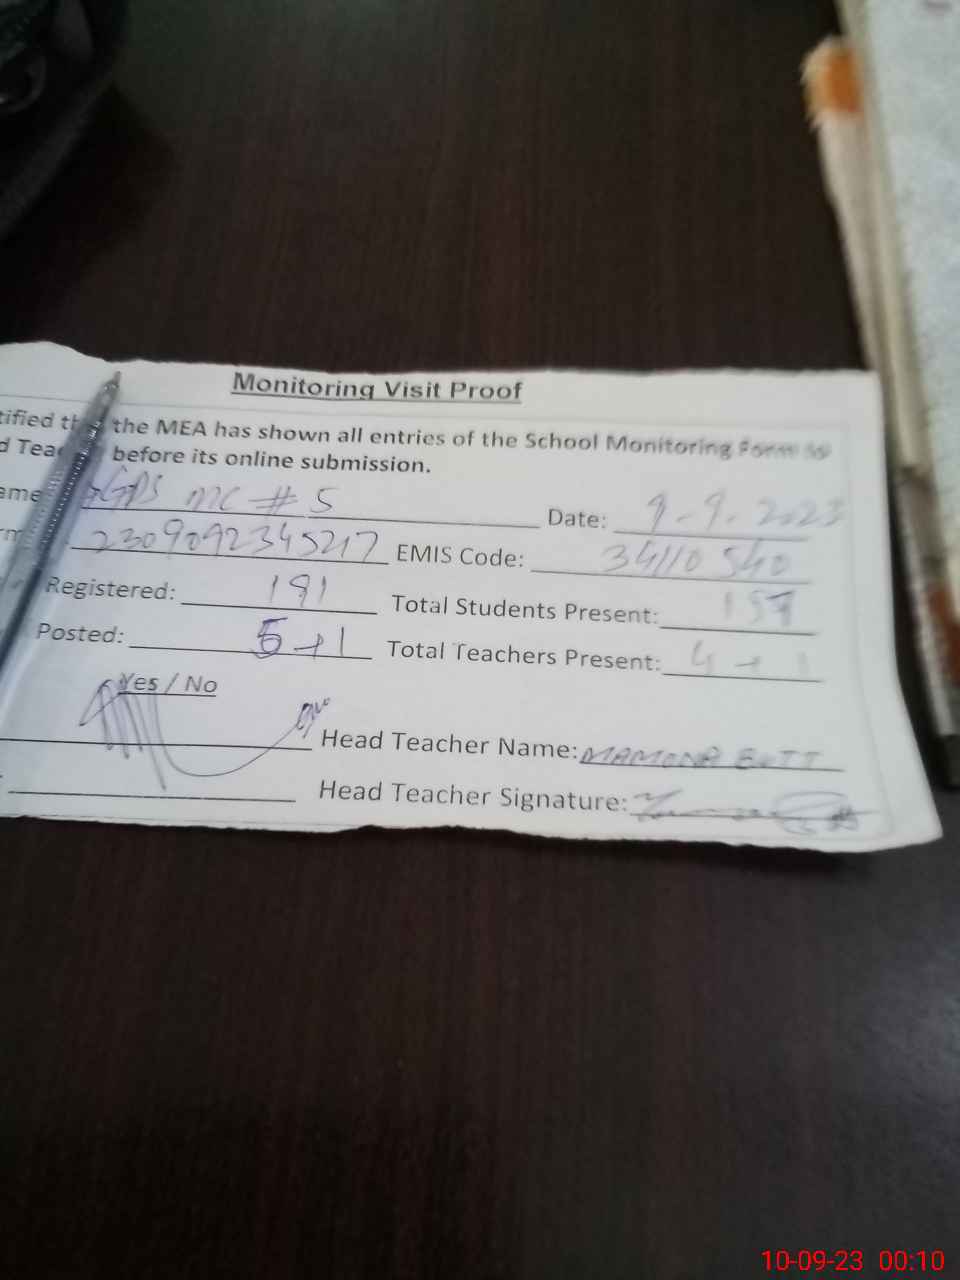 Monitoring Visit Proof
tified the MEA has shown all entries of the School Monitoring Form to
d Tea before its online submission.
ame GPS MC # 5 Date: 9-9-2023
2309092345217 EMIS Code: 34110540
Registered: 191 Total Students Present: 157
Posted: 5+1 Total Teachers Present: 4+1
Yes / No
Head Teacher Name: MAMONA BUTT
Head Teacher Signature:
10-09-23 00:10